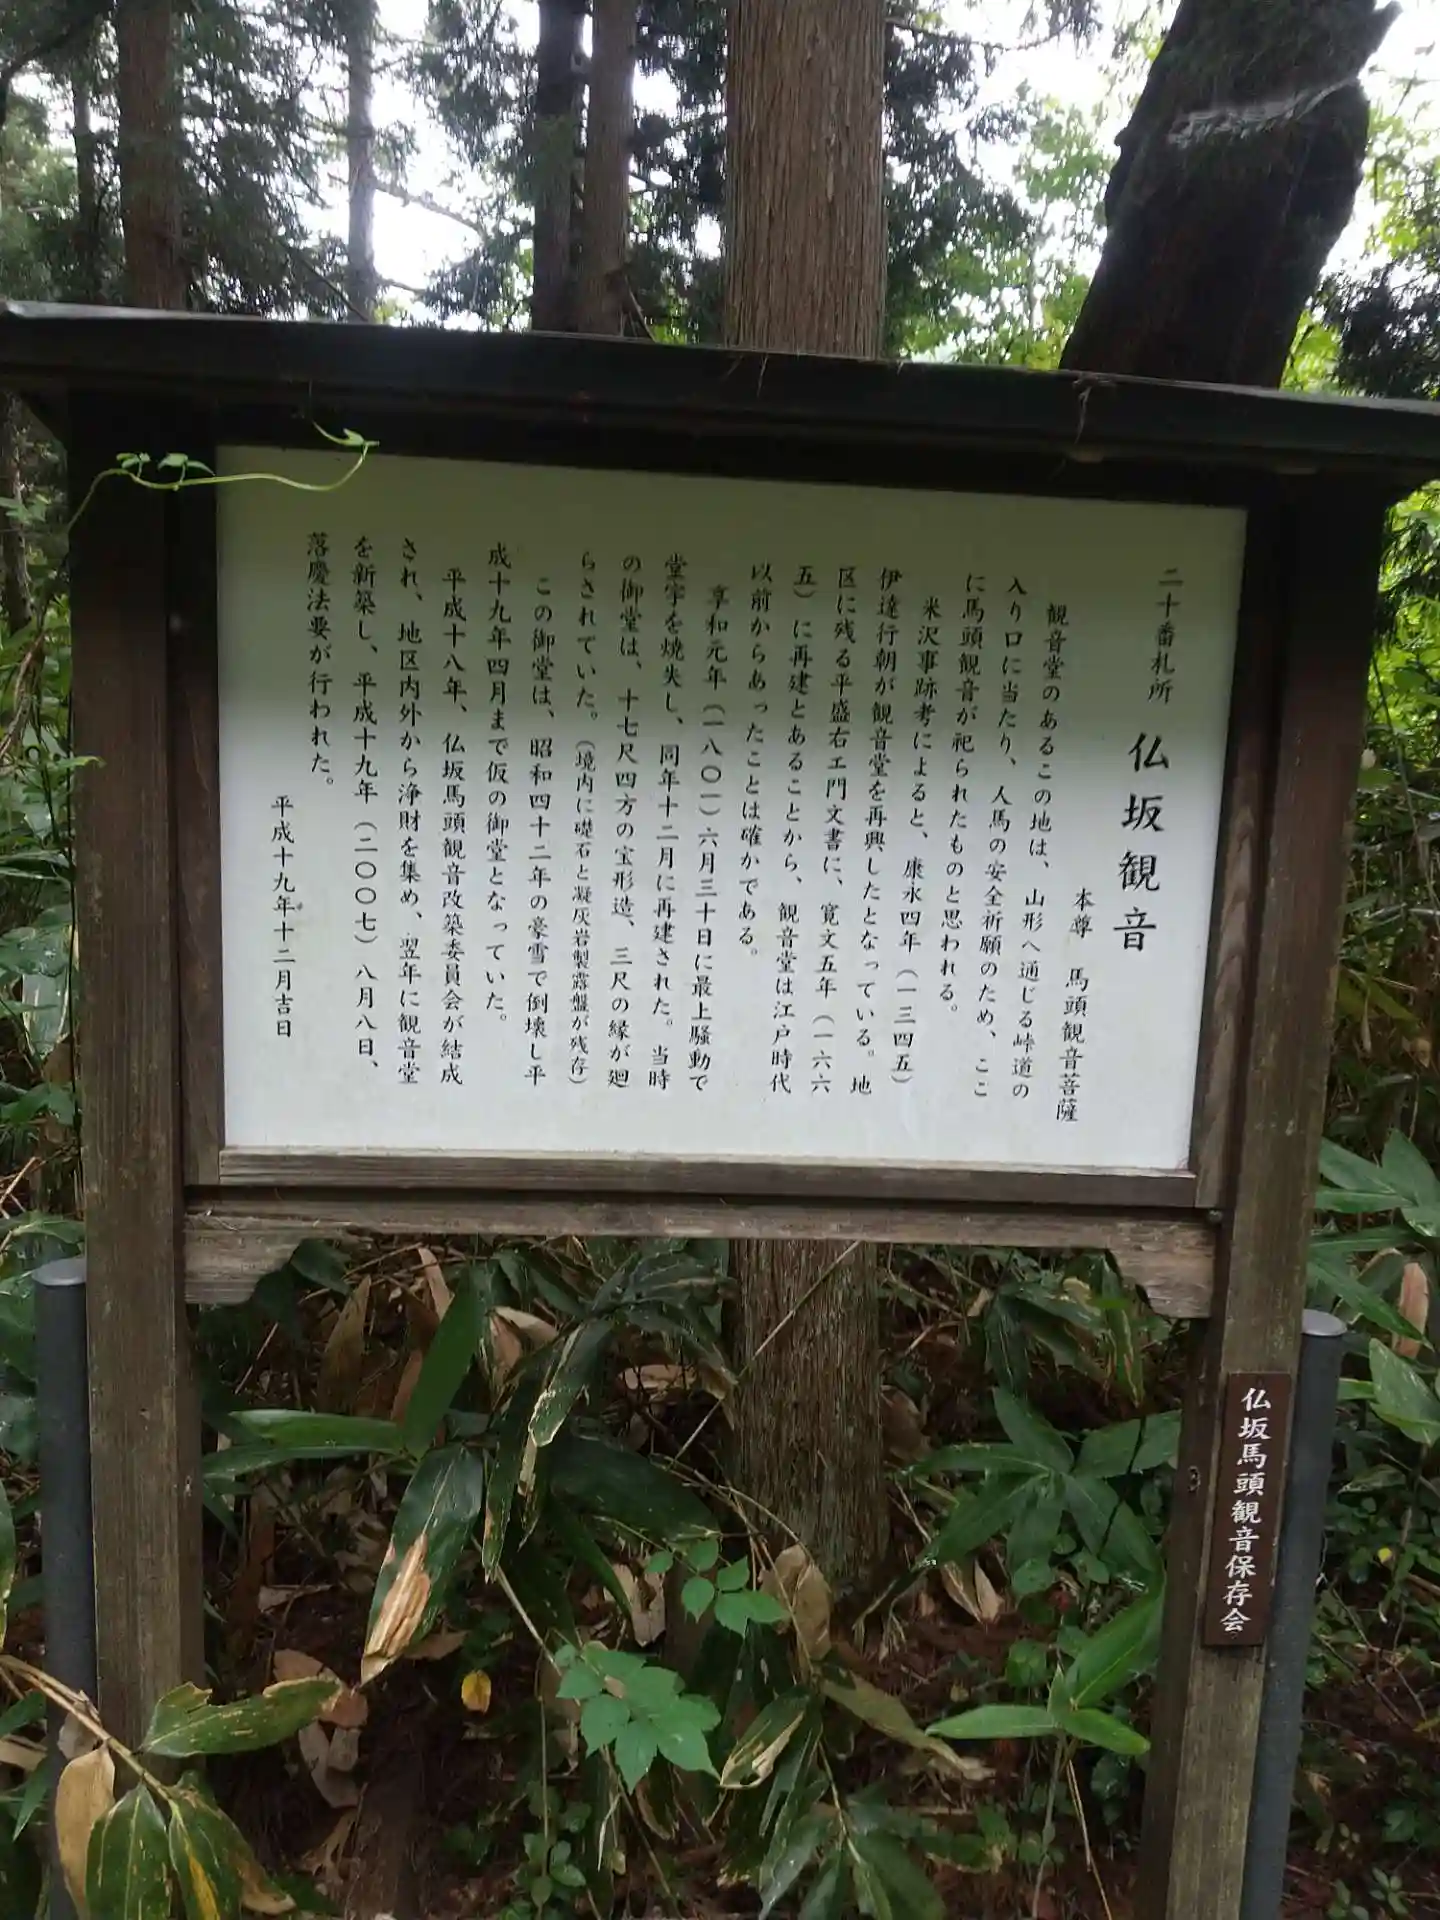 二十番札所 仏坂観音
本尊 馬頭観音菩薩
観音堂のあるこの地は、山形へ通じる峠道の
入り口に当たり、人馬の安全祈願のため、ここ
に馬頭観音が祀られたものと思われる。
米沢事跡考によると、康永四年（一三四五）
伊達行朝が観音堂を再興したとなっている。地
区に残る平盛右エ門文書に、寛文五年（一六六
五）に再建とあることから、観音堂は江戸時代
以前からあったことは確かである。
享和元年（一八〇一）六月三十日に最上騒動で
堂宇を焼失し、同年十二月に再建された。当時
の御堂は、十七尺四方の宝形造、三尺の縁が廻
らされていた。（境内に礎石と凝灰岩製露盤が残存）
この御堂は、昭和四十二年の豪雪で倒壊し平
成十九年四月まで仮の御堂となっていた。
平成十八年、仏坂馬頭観音改築委員会が結成
され、地区内外から浄財を集め、翌年に観音堂
を新築し、平成十九年（二〇〇七）八月八日、
落慶法要が行われた。
平成十九年十二月吉日
仏坂馬頭観音保存会